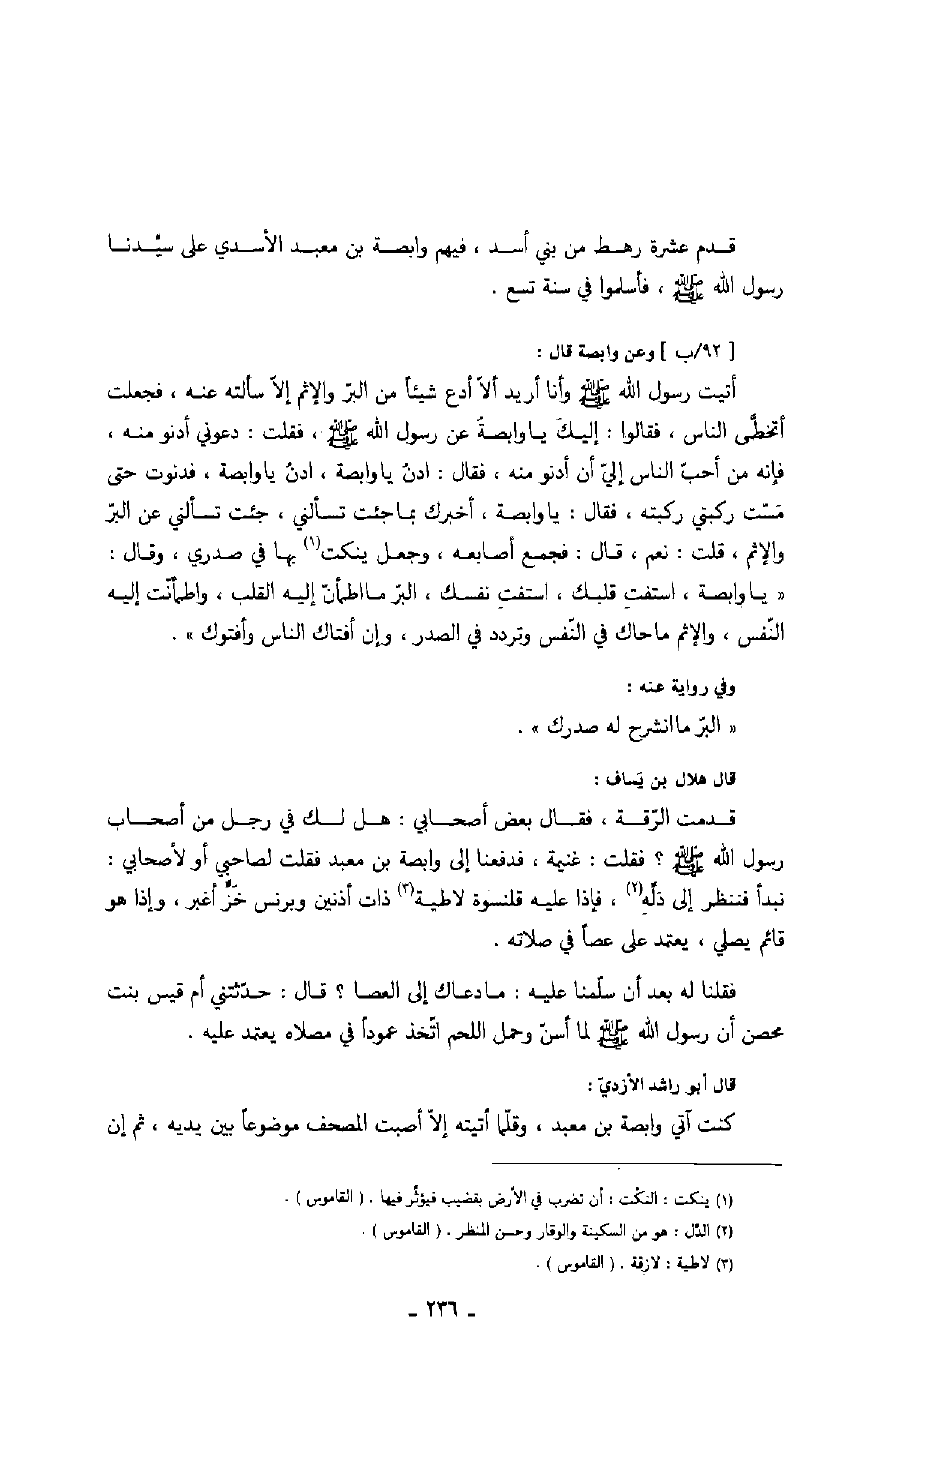 قدم عشرة رهط من بني أسد ، فيهم وابصة بن معبد الأسدي على سيِّدنا
رسول الله ﷺ ، فأسلموا في سنة تسع .
[ ٩٢/ب ] وعن وابصة قال :
أتيت رسول الله ﷺ وأنا أريد ألاّ أدع شيئاً من البرّ والإثم إلاّ سألته عنه ، فجعلت
أتخطَّى الناس ، فقالوا : إليكَ ياوابصةُ عن رسول الله ﷺ ، فقلت : دعوني أدنو منه ،
فإنه من أحبّ الناس إليّ أن أدنو منه ، فقال : ادنُ ياوابصة ، ادنُ ياوابصة ، فدنوت حتى
مَسّت ركبتي ركبته ، فقال : ياوابصة ، أخبرك بماجئت تسألني ، جئت تسألني عن البرّ
والإثم ، قلت : نعم ، قال : فجمع أصابعه ، وجعل ينكت(١) بها في صدري ، وقال :
« ياوابصة ، استفتِ قلبك ، استفتِ نفسك ، البرّ مااطمأنّ إليه القلب ، واطمأنّت إليه
النّفس ، والإثم ماحاك في النّفس وتردد في الصدر ، وإن أفتاك الناس وأفتوك » .
وفي رواية عنه :
« البرّ ماانشرح له صدرك » .
قال هلال بن يَساف :
قدمت الرّقة ، فقال بعض أصحابي : هل لك في رجل من أصحاب
رسول الله ﷺ ؟ فقلت : غنيمة ، فدفعنا إلى وابصة بن معبد فقلت لصاحبي أو لأصحابي :
نبدأ فننظر إلى دَلِّه(٢) ، فإذا عليه قلنسوة لاطية(٣) ذات أذنين وبرنس خَزٍّ أغبر ، وإذا هو
قائم يصلي ، يعتمد على عصاً في صلاته .
فقلنا له بعد أن سلّمنا عليه : مادعاك إلى العصا ؟ قال : حدّثتني أم قيس بنت
محصن أن رسول الله ﷺ لما أسنّ وحمل اللحم اتّخذ عموداً في مصلاه يعتمد عليه .
قال أبو راشد الأزديّ :
كنت آتي وابصة بن معبد ، وقلّما أتيته إلاّ أصبت المصحف موضوعاً بين يديه ، ثم إن
(١) ينكت : النكْت : أن تضرب في الأرض بقضيب فيؤثِّر فيها . ( القاموس ) .
(٢) الدّل : هو من السكينة والوقار وحسن المنظر . ( القاموس ) .
(٣) لاطية : لازقة . ( القاموس ) .
ـ ٢٣٦ ـ